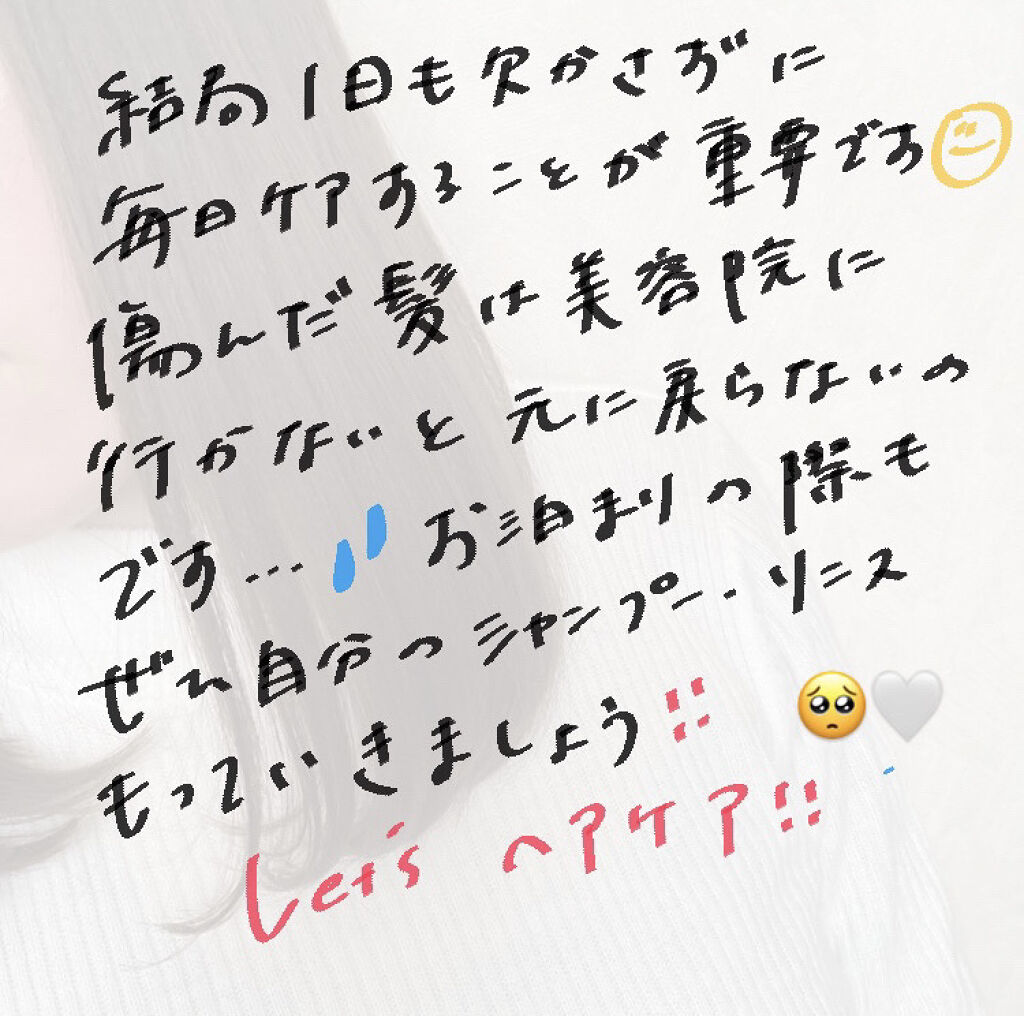 結局1日も欠かさずに
毎日ケアすることが重要です
傷んだ髪は美容院に
行かないと元に戻らないの
です... お泊まりの際も
ぜひ自分のシャンプー・リンス
もっていきましょう!!
Let's ヘアケア!!